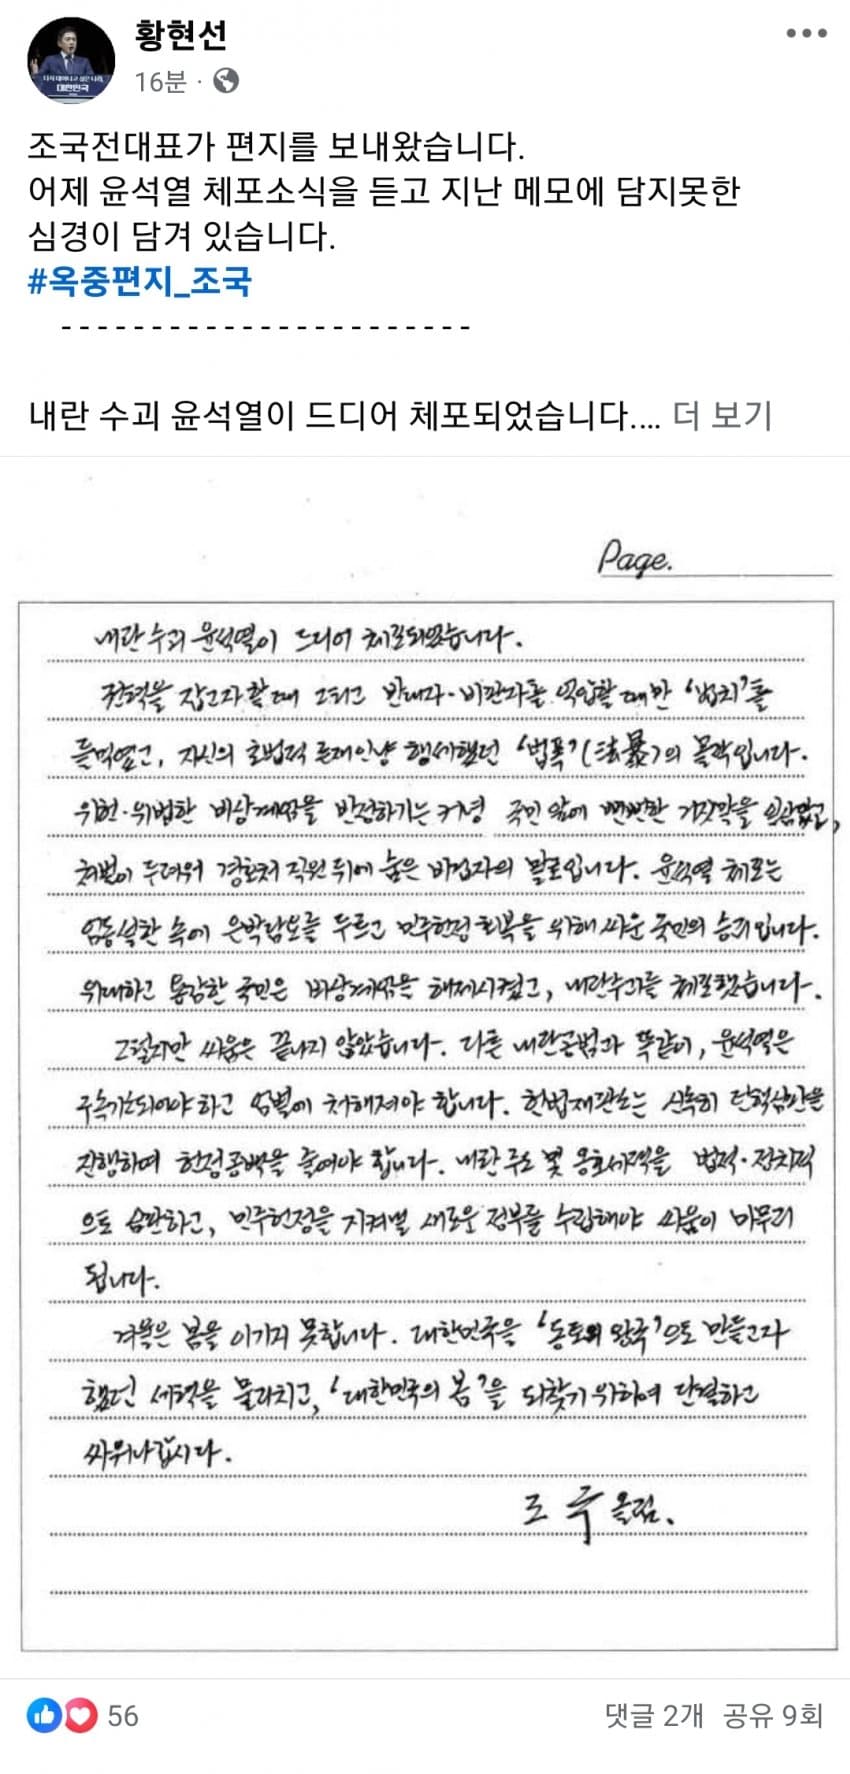 황현선
16분 ·
조국전대표가 편지를 보내왔습니다.
어제 윤석열 체포소식을 듣고 지난 메모에 담지못한
심경이 담겨 있습니다.
#옥중편지_조국
- - - - - - - - - - - - - - - - - - - - - - -
내란 수괴 윤석열이 드디어 체포되었습니다.... 더 보기
Page.
내란 수괴 윤석열이 드디어 체포되었습니다.
권력을 잡고자 할 때 그리고 반대자·비판자를 억압할 때만 '법치'를
들먹였고, 자신의 초법적 존재인냥 행세했던 '법폭'(法暴)의 몰락입니다.
위헌·위법한 비상계엄을 반성하기는커녕 국민 앞에 뻔뻔한 거짓말을 일삼았고,
처벌이 두려워 경호처 직원 뒤에 숨은 비겁자의 말로입니다. 윤석열 체포는
엄동설한 속에 은박담요를 두르고 민주헌정 회복을 위해 싸운 국민의 승리입니다.
위대하고 용감한 국민은 비상계엄을 해제시켰고, 내란수괴를 체포했습니다.
그렇지만 싸움은 끝나지 않았습니다. 다른 내란공범과 똑같이, 윤석열은
구속기소되어야 하고 엄벌에 처해져야 합니다. 헌법재판소는 신속히 탄핵심판을
진행하며 헌정공백을 줄여야 합니다. 내란 주도 및 옹호세력을 법적·정치적
으로 심판하고, 민주헌정을 지켜낼 새로운 정부를 수립해야 싸움이 마무리
됩니다.
겨울은 봄을 이기지 못합니다. 대한민국을 '동토의 왕국'으로 만들고자
했던 세력을 물리치고, '대한민국의 봄'을 되찾기 위하여 단결하고
싸워나갑시다.
조국 올림.
56
댓글 2개 공유 9회